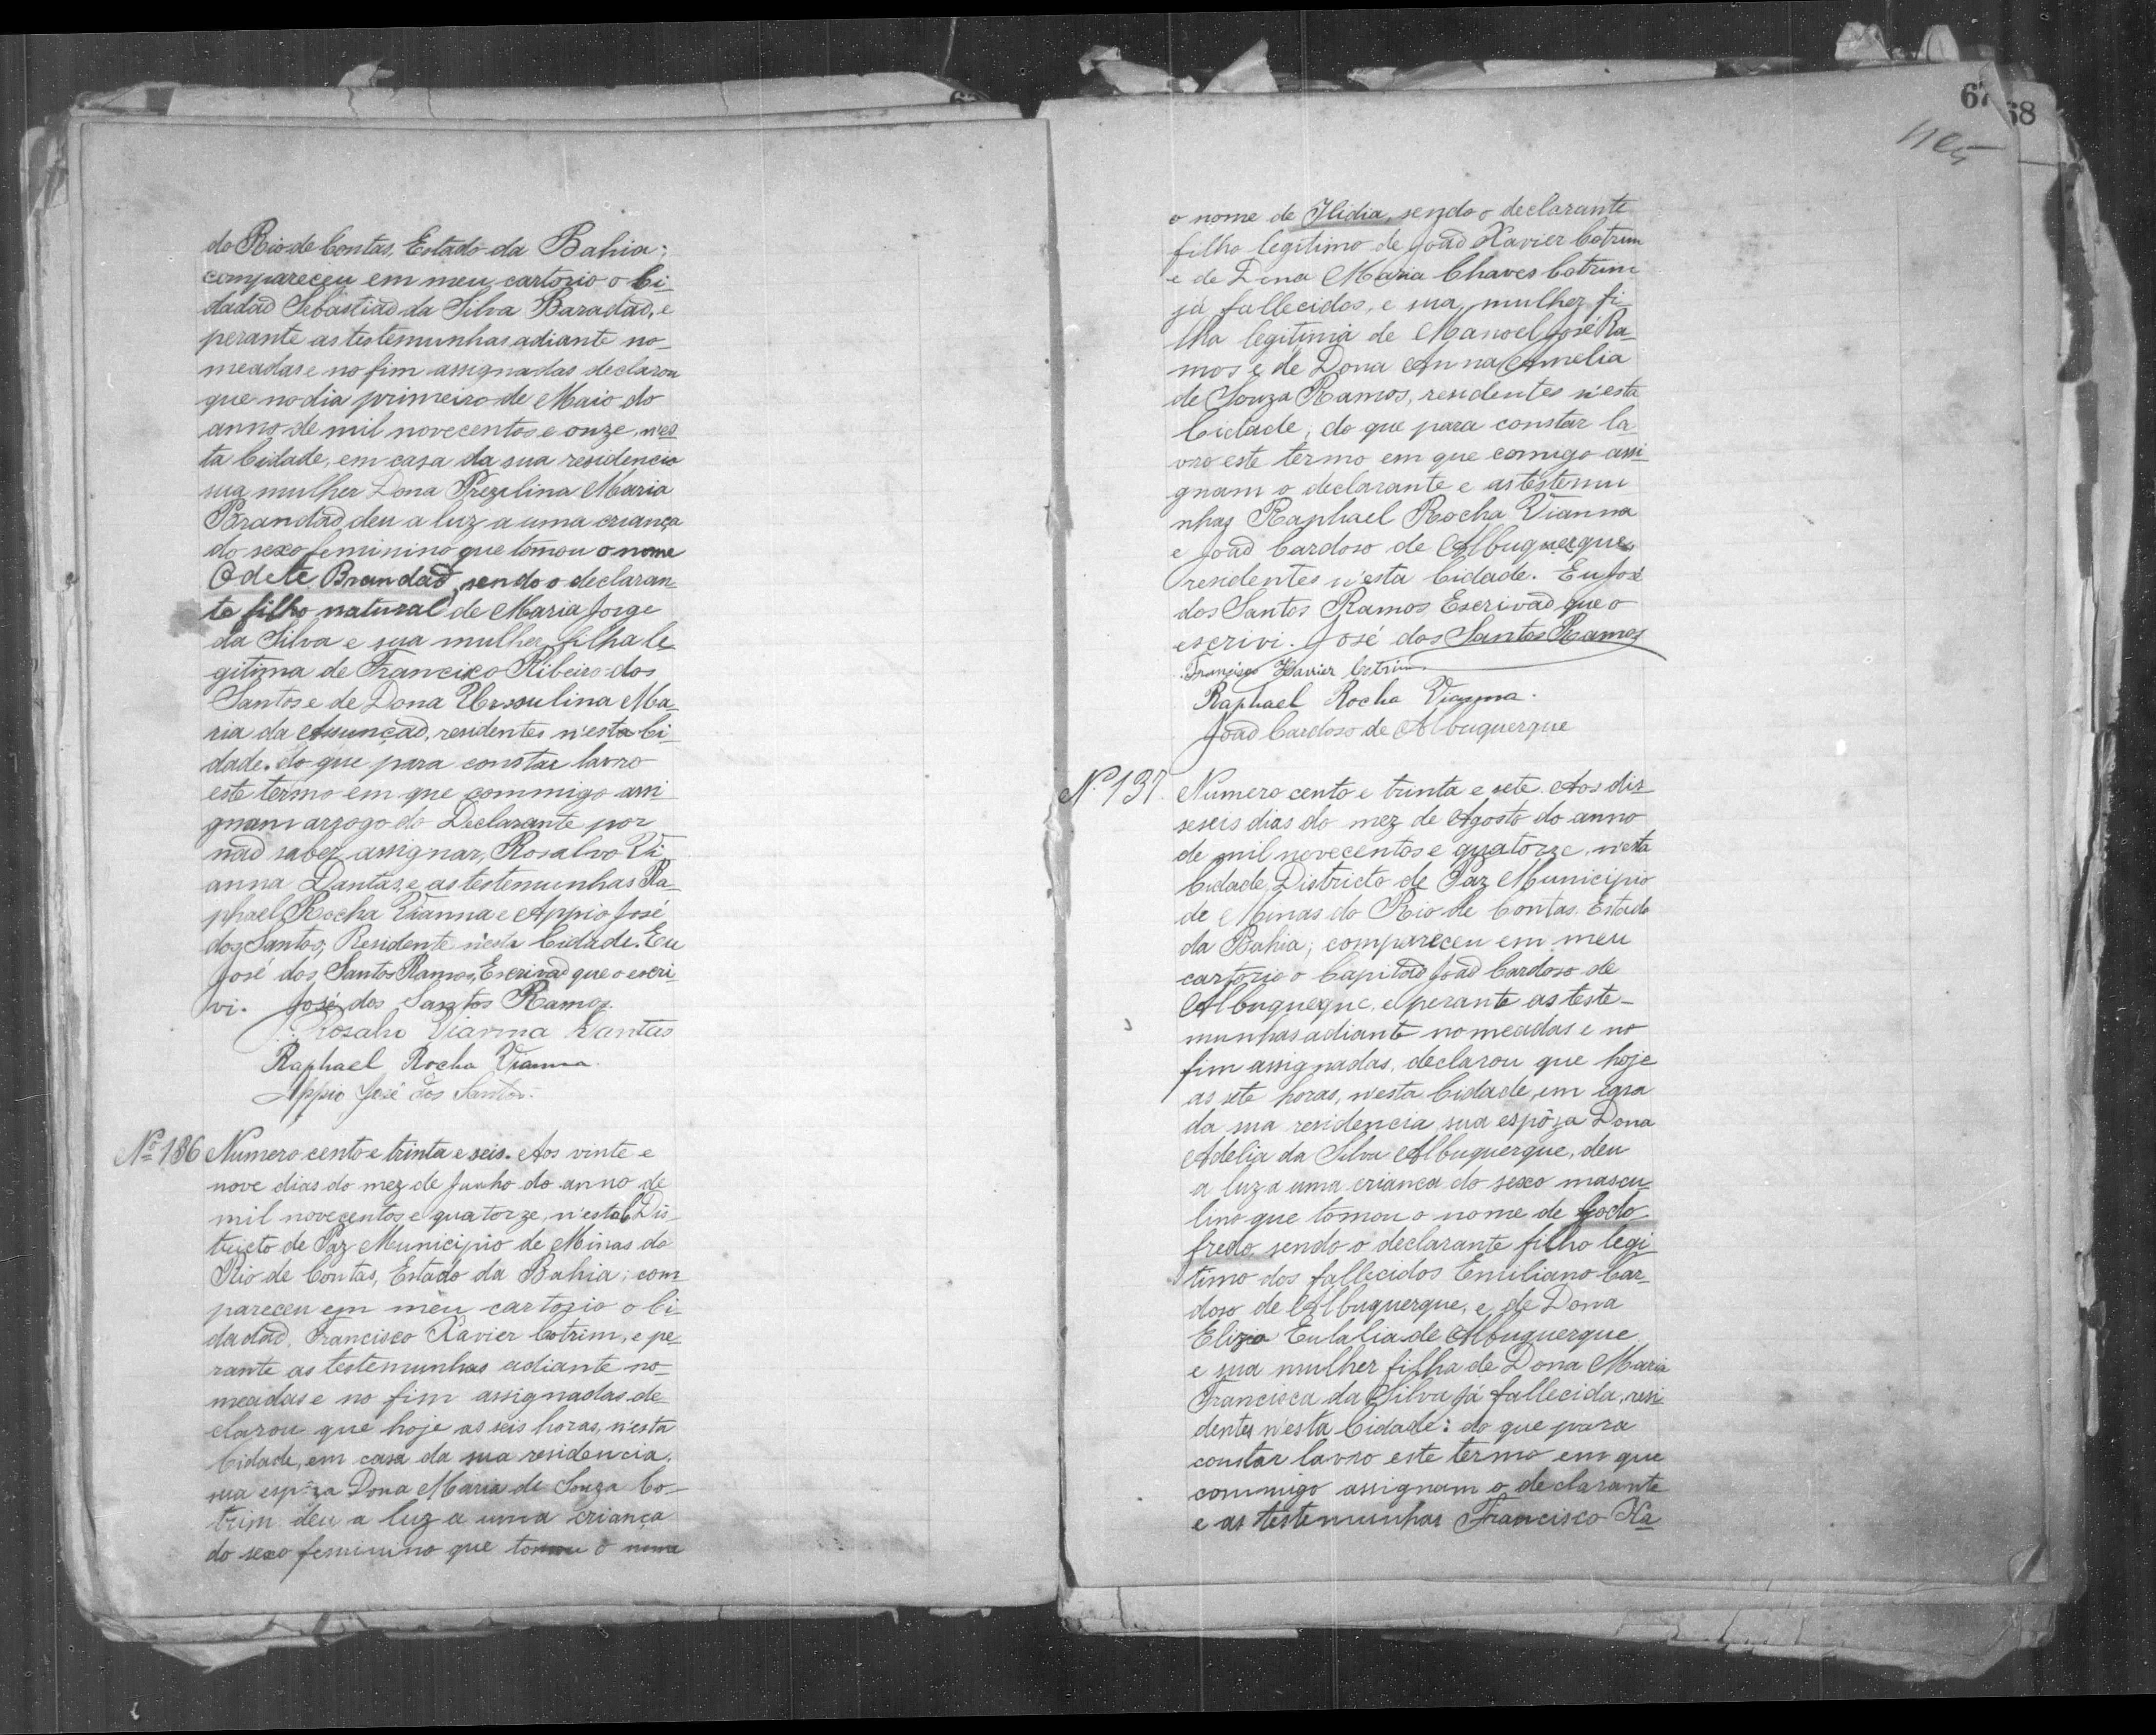 do Rio de Contas, Estado da Bahia;
compareceu em meu cartorio o Ci-
dadaõ Sebastiaõ da Silva Baradaõ, e
perante as testemunhas adiante no-
meadas e no fim assignadas declarou
que no dia primeiro de Maio do
anno de mil novecentos e onze, n'es
ta Cidade, em casa da sua residencia
sua mulher Dona Prezilina Maria
Brandaõ, deu a luz a uma criança
do sexo feminino que tomou o nome
Odete Brandaõ, sendo o declaran-
te filho natural de Maria Jorge
da Silva e sua mulher, filha le
gitima de Francisco Ribeiro dos
Santos e de Dona Ursulina Ma-
ria da Assunçaõ, residentes n'esta Ci-
dade. do que para constar lavro
este termo em que commigo assi
gnam arzogo do Declarante por
naõ saber assignar, Rosalvo Vi
anna Dantas, e as testemunhas Ra-
phael Rocha Vianna e Appio José
dos Santos, Residente n'esta Cidade. Eu
José dos Santos Ramos, Escrivaõ que o escri-
vi. José dos Santos Ramos.
Rosalvo Vianna Dantas
Raphael Rocha Vianna.
Appio José dos Santos.
Nº 136 Numero cento e trinta e seis. Aos vinte e
nove dias do mez de Junho do anno de
mil novecentos e quatorze, n'esta Dis-
tricto de Paz Municipio de Minas do
Rio de Contas, Estado da Bahia; com
pareceu em meu cartorio o Ci-
dadaõ Francisco Xavier Cotrim, e pe-
rante as testemunhas adiante no-
meadas e no fim assignadas de-
clarou que hoje as seis horas, n'esta
Cidade, em casa da sua residencia,
sua espôza Dona Maria de Souza Co-
trim deu a luz a uma criança
do sexo feminino que tomou o nome
67
68
o nome de Ilidia, sendo o declarante
filho legitimo de Joaõ Xavier Cotrim
e de Dona Maria Chaves Cotrim
já fallecidos, e sua mulher fi-
lha legitima de Manoel José Ra-
mos e de Dona Anna Amelia
de Souza Ramos, residentes n'esta
Cidade, do que para constar la-
vro este termo em que comigo assi-
gnam o declarante e as testemu
nhas Raphael Rocha Vianna
e Joaõ Cardoso de Albuquerque,
residentes n'esta Cidade. Eu José
dos Santos Ramos Escrivaõ que o
escrivi. José dos Santos Ramos
Francisco Xavier Cotrim.
Raphael Rocha Vianna.
Joaõ Cardoso de Albuquerque
Nº 137. Numero cento e trinta e sete. Aos dis-
seseis dias do mez de Agosto do anno
de mil novecentos e quatorze, n'esta
Cidade, Districto de Paz Municipio
de Minas do Rio de Contas. Estado
da Bahia; compareceu em meu
cartorio o Capitaõ Joaõ Cardoso de
Albuquerque, e perante as teste-
munhas adiante nomeadas e no
fim assignadas, declarou que hoje
as sete horas, n'esta Cidade, em casa
da sua residencia, sua espôza Dona
Adelia da Silva Albuquerque, deu
a luz a uma criança do sexo mascu-
lino que tomou o nome de Godo-
fredo, sendo o declarante filho legi-
timo dos fallecidos Emiliano Car-
doso de Albuquerque, e de Dona
Elizia Eulalia de Albuquerque
e sua mulher filha de Dona Maria
Francisca da Silva já fallecida, resi
dentes n'esta Cidade: do que para
constar lavro este termo em que
commigo assignam o declarante
e as testemunhas Francisco Xa